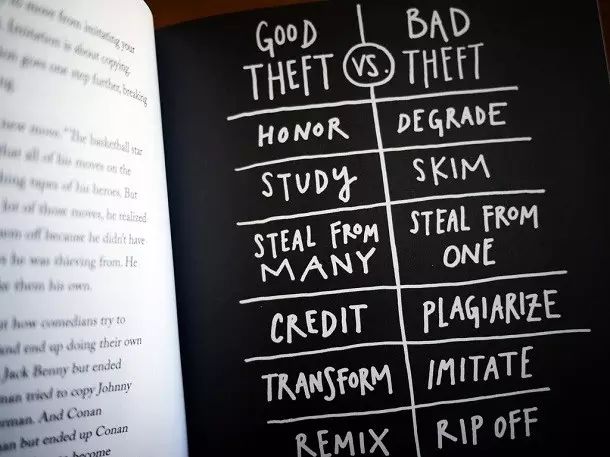 from imitating your
Imitation is about copying.
goes one step further, breaking
new move." The basketball star
that all of his moves on the
tapes of his heroes. But
lot of those moves, he realized
off because he didn't have
he was thieving from. He
them his own.
how comedians try to
end up doing their own
Jack Benny but ended
tried to copy Johnny
And Conan
but ended up Conan
become
GOOD THEFT VS. BAD THEFT
HONOR DEGRADE
STUDY SKIM
STEAL FROM MANY STEAL FROM ONE
CREDIT PLAGIARIZE
TRANSFORM IMITATE
REMIX RIP OFF